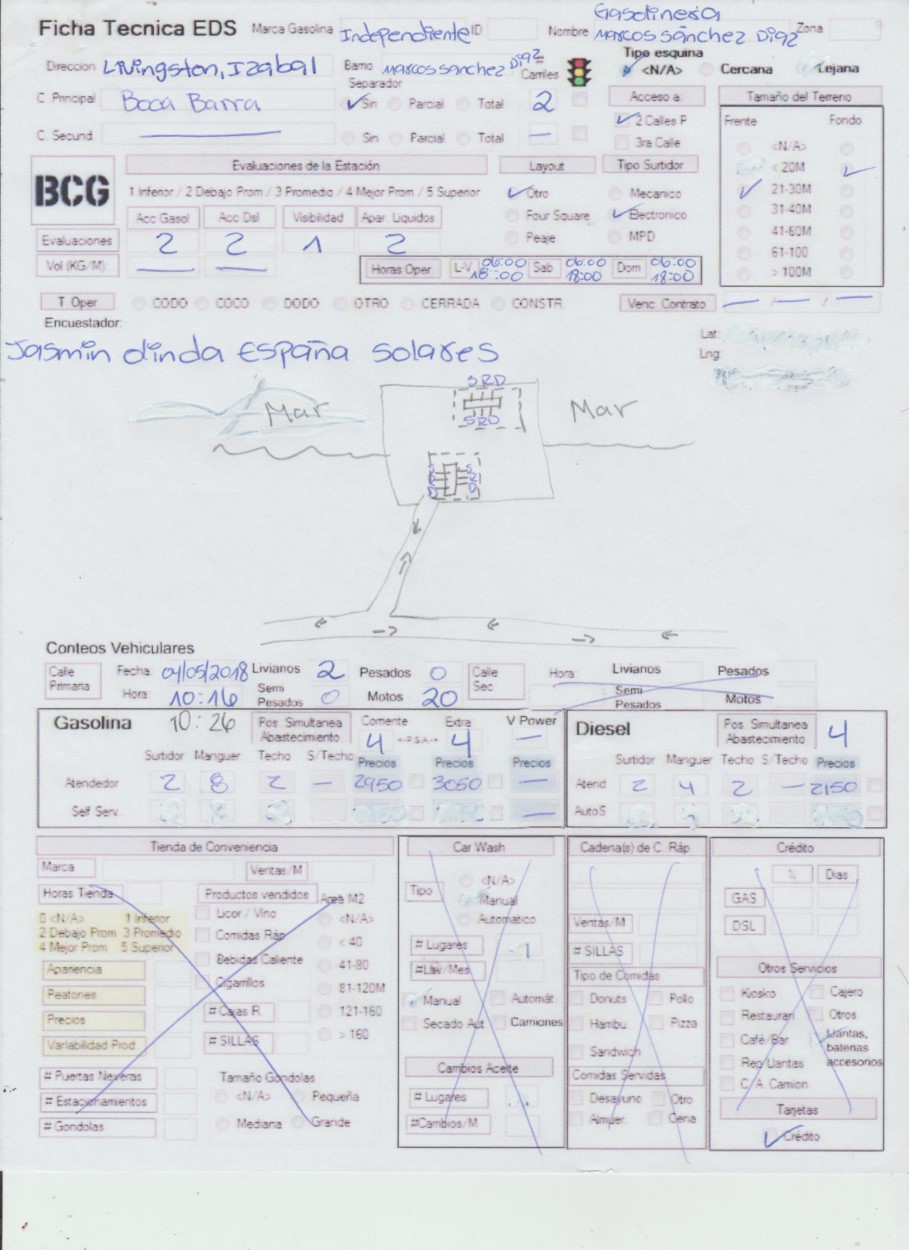 Ficha Tecnica EDS Marca Gasolina Independiente ID Nombre Gasolinera Marcos Sánchez Diaz Zona
Direccion Livingston, Izabal Barrio Marcos Sanchez Diaz Carriles Tipo esquina <N/A> Cercana Lejana
Separador
C Principal Boca Barra Sin Parcial Total 2 Acceso a: Tamaño del Terreno
2 Calles P Frente Fondo
C. Secund. — Sin Parcial Total — 3ra Calle <N/A>
< 20M
BCG Evaluaciones de la Estación Layout Tipo Surtidor
1 Inferior / 2 Debajo Prom / 3 Promedio / 4 Mejor Prom / 5 Superior Otro Mecanico 21-30M
Acc Gasol Acc Dsl Visibilidad Apar. Liquidos Four Square Electronico 31-40M
Evaluaciones 2 2 1 2 Peaje MPD 41-60M
61-100
Vol (KG/M) — — Horas Oper L-V 06:00 18:00 Sab 06:00 18:00 Dom 06:00 18:00 > 100M
T. Oper CODO COCO DODO OTRO CERRADA CONSTR. Venc. Contrato — / — / —
Encuestador:
Jasmin dinda España solares
Lat:
Lng:
SRD
Mar Mar
SRD
SRD SRD
Conteos Vehiculares
Calle Primaria Fecha: 04/05/2018 Livianos 2 Pesados 0 Calle Sec Hora: Livianos Pesados
Hora: 10:16 Semi Pesados 0 Motos 20 Semi Pesados Motos
Gasolina 10:26 Pos. Simultanea Abastecimiento Corriente 4 <-P.S.A.-> Extra 4 V Power — Diesel Pos. Simultanea Abastecimiento 4
Surtidor Manguer Techo S/Techo Precios Precios Precios Surtidor Manguer Techo S/Techo Precios
Atendedor 2 8 2 — 2950 3050 — Atend 2 4 2 — 2150
Self Serv. — AutoS
Tienda de Conveniencia Car Wash Cadena(s) de C. Ráp Crédito
Marca Ventas/M <N/A> % Dias
Horas Tienda Productos vendidos Area M2 Tipo Manual GAS
0 <N/A> 1 Inferior Licor / Vino <N/A> Automatico Ventas/M DSL
2 Debajo Prom 3 Promedio Comidas Ráp < 40 # Lugares # SILLAS
4 Mejor Prom 5 Superior Bebidas Caliente 41-80 #Lav/Mes Tipo de Comidas Otros Servicios
Apariencia Cigarrillos 81-120M Manual Automát. Donuts Pollo Kiosko Cajero
Peatones # Cajas R. 121-160 Secado Aut Camiones Hambu. Pizza Restauran Otros
Precios # SILLAS > 160 Sandwich Café/Bar Llantas, baterias accesorios
Variabilidad Prod Cambios Aceite Comidas Servidas Rep Llantas
# Puertas Neveras Tamaño Gondolas Desayuno Otro C. A. Camion
# Estacionamientos <N/A> Pequeña # Lugares Almuer. Cena Tarjetas
# Gondolas Mediana Grande #Cambios/M Crédito